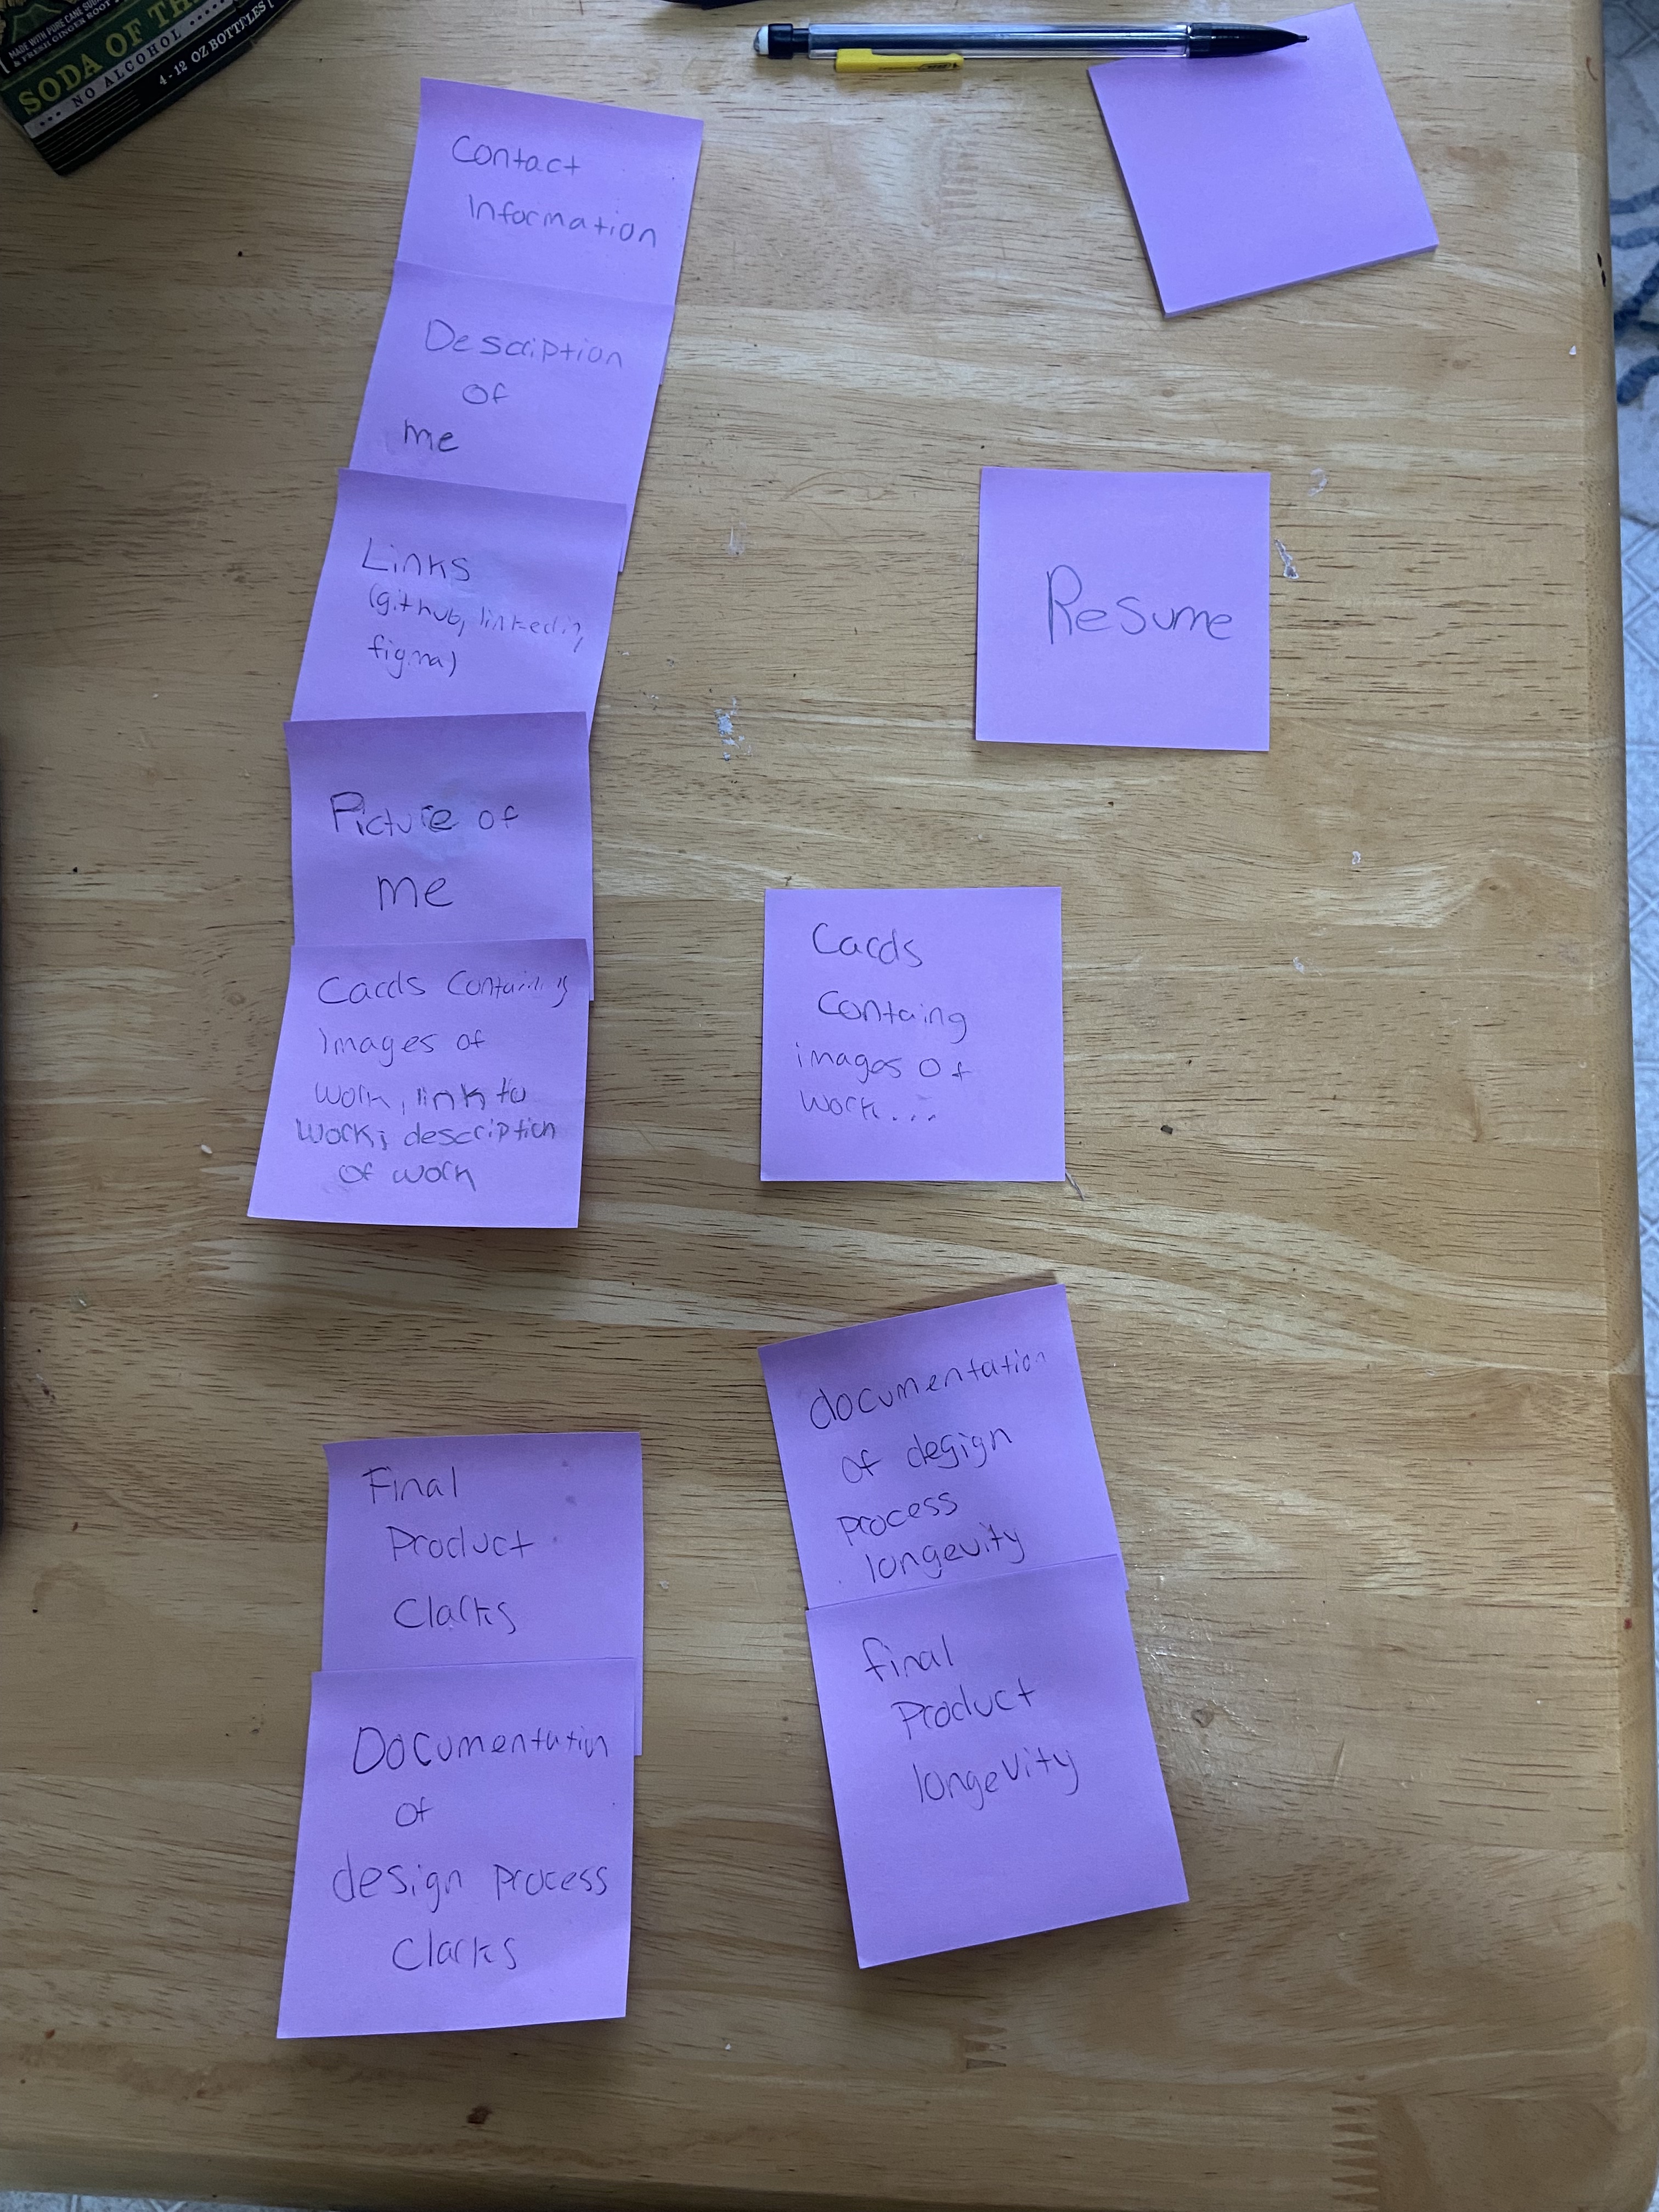 MADE WITH PURE CANE
& FRESH GINGER ROOT
SODA OF TH
NO ALCOHOL
4-12 OZ BOTTLES
Contact
Information
Description
of
me
Links
(github, linkedin,
figma)
Picture of
me
Cards Containing
Images of
work, link to
work, description
of work
Resume
Cards
Containg
images of
work...
Final
Product
Clarks
Documentation
of
design process
Clarks
documentation
of design
process
longevity
final
Product
longevity